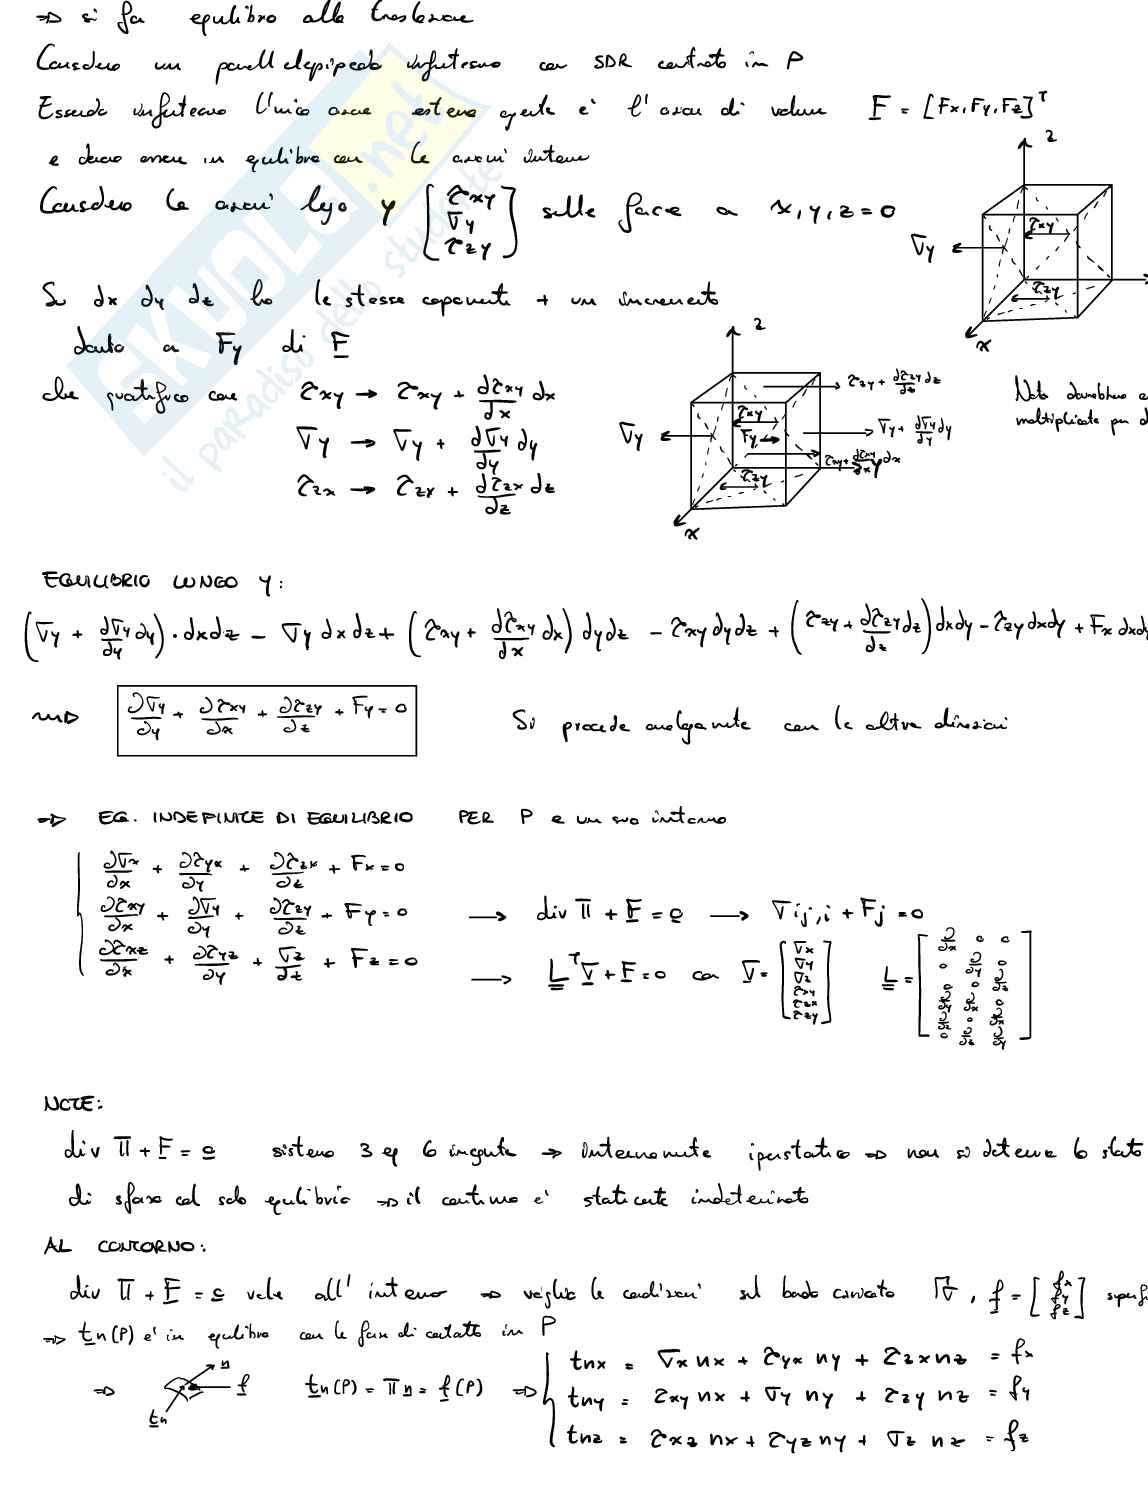 ⇒ si fa equilibrio alla traslazione
Considero un parallelepipedo infinitesimo con SDR centrato in P
Essendo infinitesimo l'unica azione esterna agente e' l'azione di volume F = [Fx, Fy, Fz]ᵀ
e devono essere in equilibrio con le azioni interne
Considero le azioni lungo y [τxy σy τzy] sulle facce a x,y,z=0
Su dx dy dz ho le stesse componenti + un incremento
dovuto a Fy di F
che quantifico come τxy → τxy + dτxy/dx dx
σy → σy + dσy/dy dy
τzx → τzx + dτzx/dz dz
z
τxy
σy
τzy
x
z
τzy + dτzy/dz dz
τxy
σy
Fy
σy + dσy/dy dy
τxy + dτxy/dx dx
τzy
y
x
Nota dovrebbero
moltiplicate per d
EQUILIBRIO LUNGO Y:
(σy + dσy/dy dy)·dxdz − σy dxdz + (τxy + dτxy/dx dx) dydz − τxy dydz + (τzy + dτzy/dz dz) dxdy − τzy dxdy + Fx dxdy
⇒ ∂σy/∂y + ∂τxy/∂x + ∂τzy/∂z + Fy = 0 Si procede analogamente con le altre direzioni
⇒ EQ. INDEFINITE DI EQUILIBRIO PER P e un suo intorno
∂σx/∂x + ∂τyx/∂y + ∂τzx/∂z + Fx = 0
∂τxy/∂x + ∂σy/∂y + ∂τzy/∂z + Fy = 0 → div 𝕋 + F = 0 → σij,i + Fj = 0
∂τxz/∂x + ∂τyz/∂y + σz/∂z + Fz = 0 → Lᵀσ + F = 0 con σ = [σx σy σz τxy τzx τzy] L =
NOTE:
div 𝕋 + F = 0 sistema 3 eq 6 incognite ⇒ internamente iperstatico ⇒ non si determina lo stato
di sforzo col solo equilibrio ⇒ il continuo e' staticamente indeterminato
AL CONTORNO:
div 𝕋 + F = 0 vale all'interno ⇒ voglio le condizioni sul bordo caricato Γσ, f = [fx fy fz]
⇒ tn(P) e' in equilibrio con le forze di contatto in P
n
f
tn
⇒ tn(P) = 𝕋n = f(P) ⇒
tnx = σx nx + τyx ny + τzx nz = fx
tny = τxy nx + σy ny + τzy nz = fy
tnz = τxz nx + τyz ny + σz nz = fz
SKUOLA.net
il paradiso dello studente